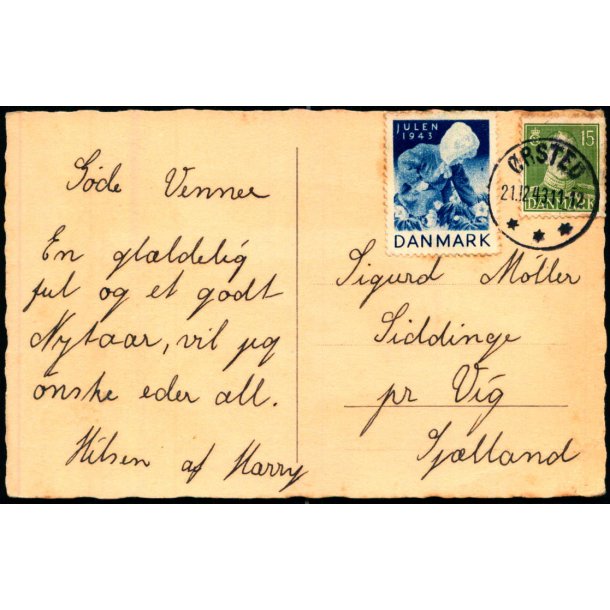 JULEN
1943
DANMARK
15
DANMARK
ØRSTED
21.12.43.11-12
Søde Venner
En glædelig
Jul og et godt
Nytaar, vil jeg
ønske eder all.
Hilsen af Harry
Sigurd Möller
Siddinge
pr Vig
Sjælland